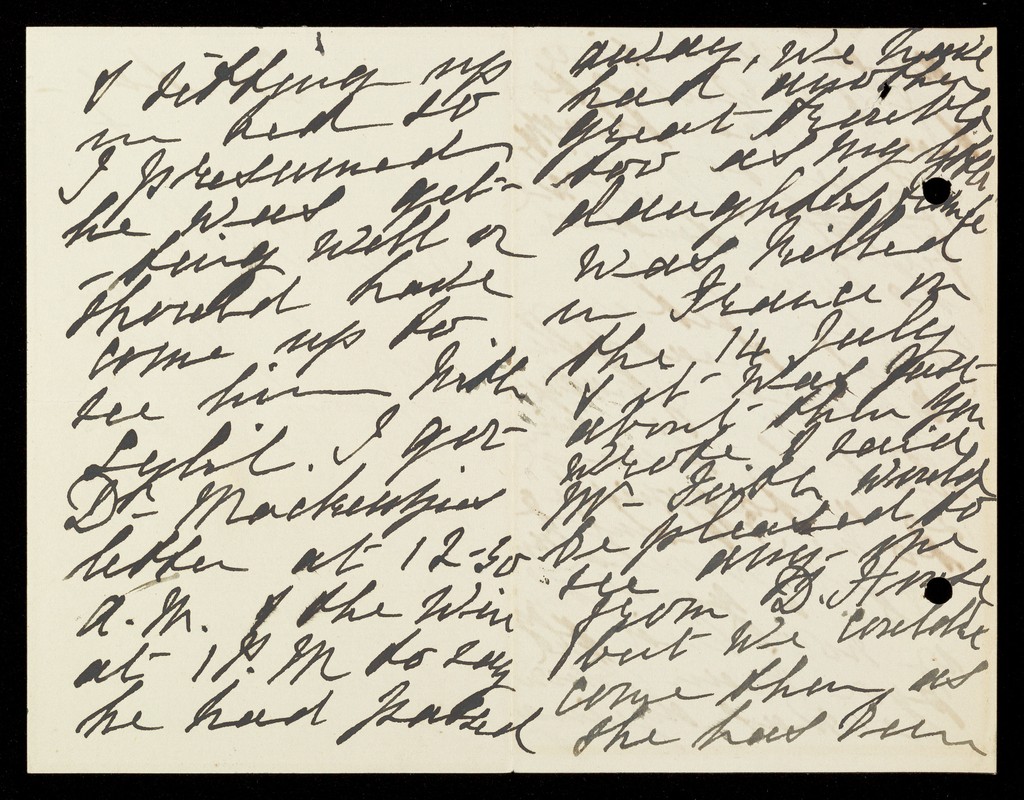 & sitting up
in bed so
I presumed
he was get-
-ting well or
should have
come up to
see him with
Sybil. I got
Dr Mackenzies
letter at 12-30
A.M. & the wire
at 1 P.M to say
he had passed
away, we have
had another
great trouble
too as my
daughters
was killed
in France on
the 14 July
& it was just
about then you
wrote & said
Mr Firth would
be pleased to
see any-one
from D.
but we couldnt
come then, as
she has been